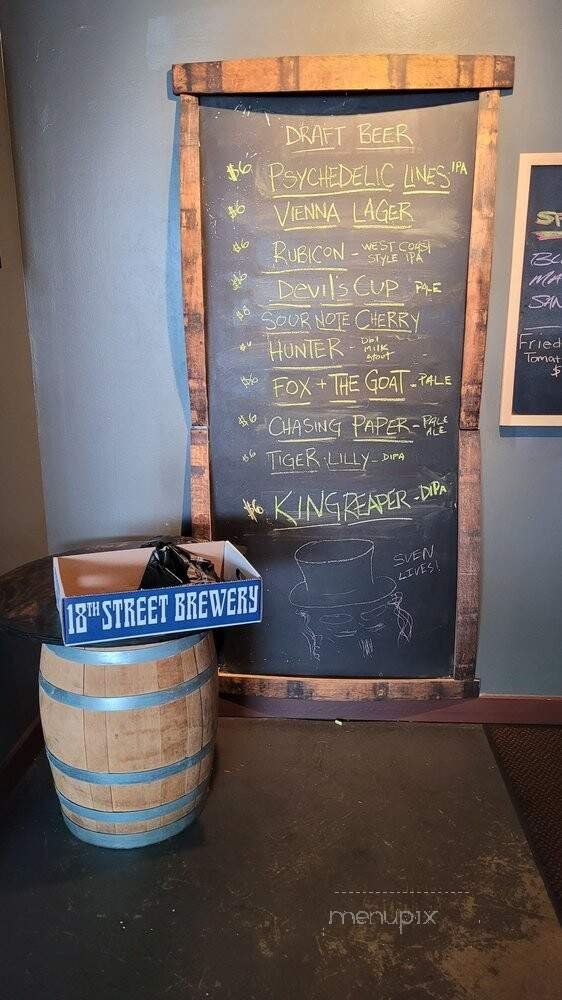 DRAFT BEER
$6 PSYCHEDELIC LINES IPA
$6 VIENNA LAGER
$6 RUBICON - WEST COAST STYLE IPA
$6 DEVIL'S CUP PALE
$8 SOUR NOTE CHERRY
HUNTER - Dbl MILK STOUT
$6 FOX + THE GOAT - PALE
$6 CHASING PAPER - PALE ALE
$6 TIGER LILLY - DIPA
$6 KING REAPER - DIPA
SVEN LIVES!
18TH STREET BREWERY
Fried
Tomat
$
menupix